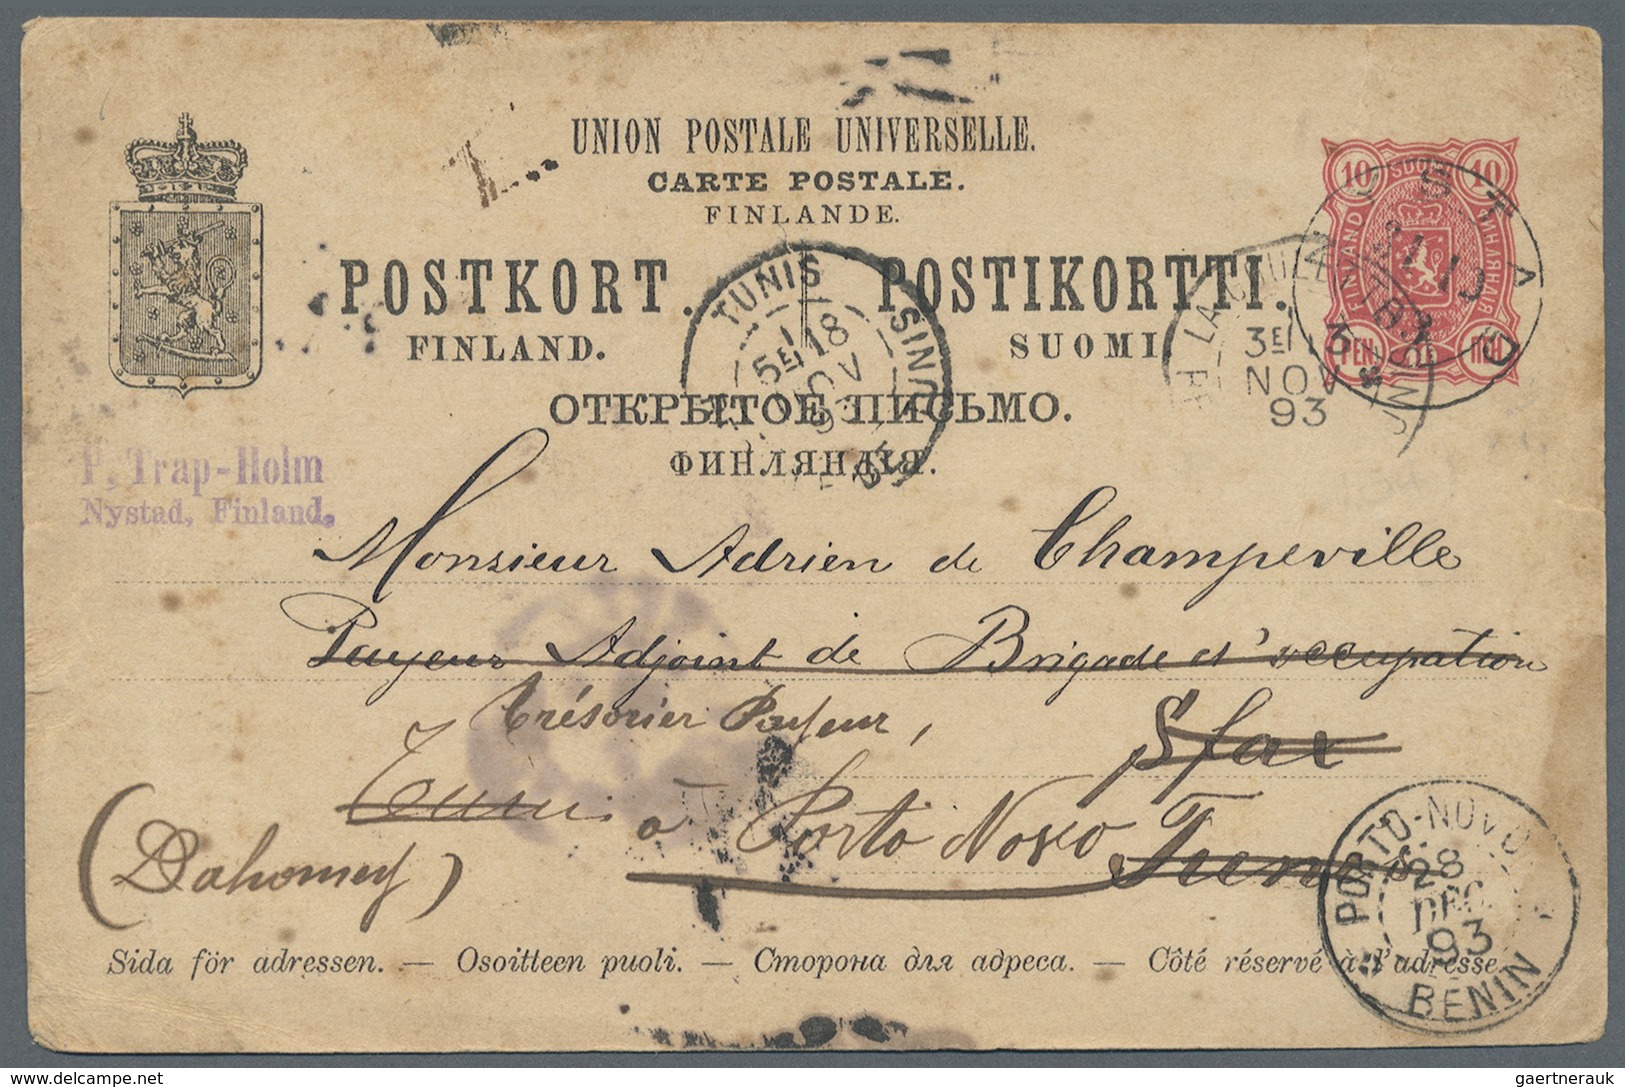 UNION POSTALE UNIVERSELLE.
CARTE POSTALE.
FINLANDE.
POSTKORT. POSTIKORTTI.
FINLAND. SUOMI
ОТКРЫТОЕ ПИСЬМО.
ФИНЛЯНДІЯ.
10 10
PEN. ПЕН.
TUNIS TUNIS
5E 18
NOV
3E
NOV
93
P. Trap-Holm
Nystad, Finland.
Monsieur Adrien de Champeville
Payeur Adjoint de Brigade d'occupation
Trésorier Payeur, Sfax
à Porto Novo
(Dahomey)
PORTO-NOVO
28
DEC
93
BENIN
Sida för adressen. — Osoitteen puoli. — Сторона для адреса. — Côté réservé à l'adresse.
gaertnerauk